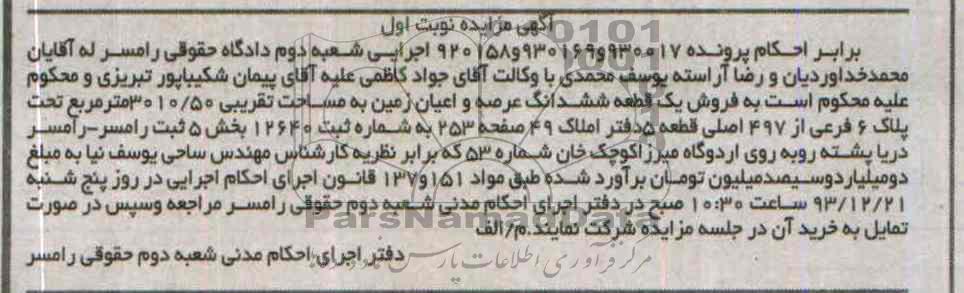 آگهی مزایده نوبت اول
برابر احکام پرونده ۹۳۰۰۱۷و۹۳۰۱۶۹و۹۲۰۱۵۸ اجرایی شعبه دوم دادگاه حقوقی رامسر له آقایان
محمدخداوردیان و رضا آراسته یوسف محمدی با وکالت آقای جواد کاظمی علیه آقای پیمان شکیباپور تبریزی و محکوم
علیه محکوم است به فروش یک قطعه ششدانگ عرصه و اعیان زمین به مساحت تقریبی ۳۰۱۰/۵۰مترمربع تحت
پلاک ۶ فرعی از ۴۹۷ اصلی قطعه ۵دفتر املاک ۴۹ صفحه ۲۵۳ به شماره ثبت ۱۲۶۴۰ بخش ۵ ثبت رامسر-رامسر
دریا پشته روبه روی اردوگاه میرزاکوچک خان شماره ۵۳ که برابر نظریه کارشناس مهندس ساحی یوسف نیا به مبلغ
دومیلیاردوسیصدمیلیون تومان برآورد شده طبق مواد ۱۵۱و۱۳۷ قانون اجرای احکام اجرایی در روز پنج شنبه
۹۳/۱۲/۲۱ ساعت ۱۰:۳۰ صبح در دفتر اجرای احکام مدنی شعبه دوم حقوقی رامسر مراجعه وسپس در صورت
تمایل به خرید آن در جلسه مزایده شرکت نمایند.م/الف
دفتر اجرای احکام مدنی شعبه دوم حقوقی رامسر
ParsNamadData
مرکز فرآوری اطلاعات پارس